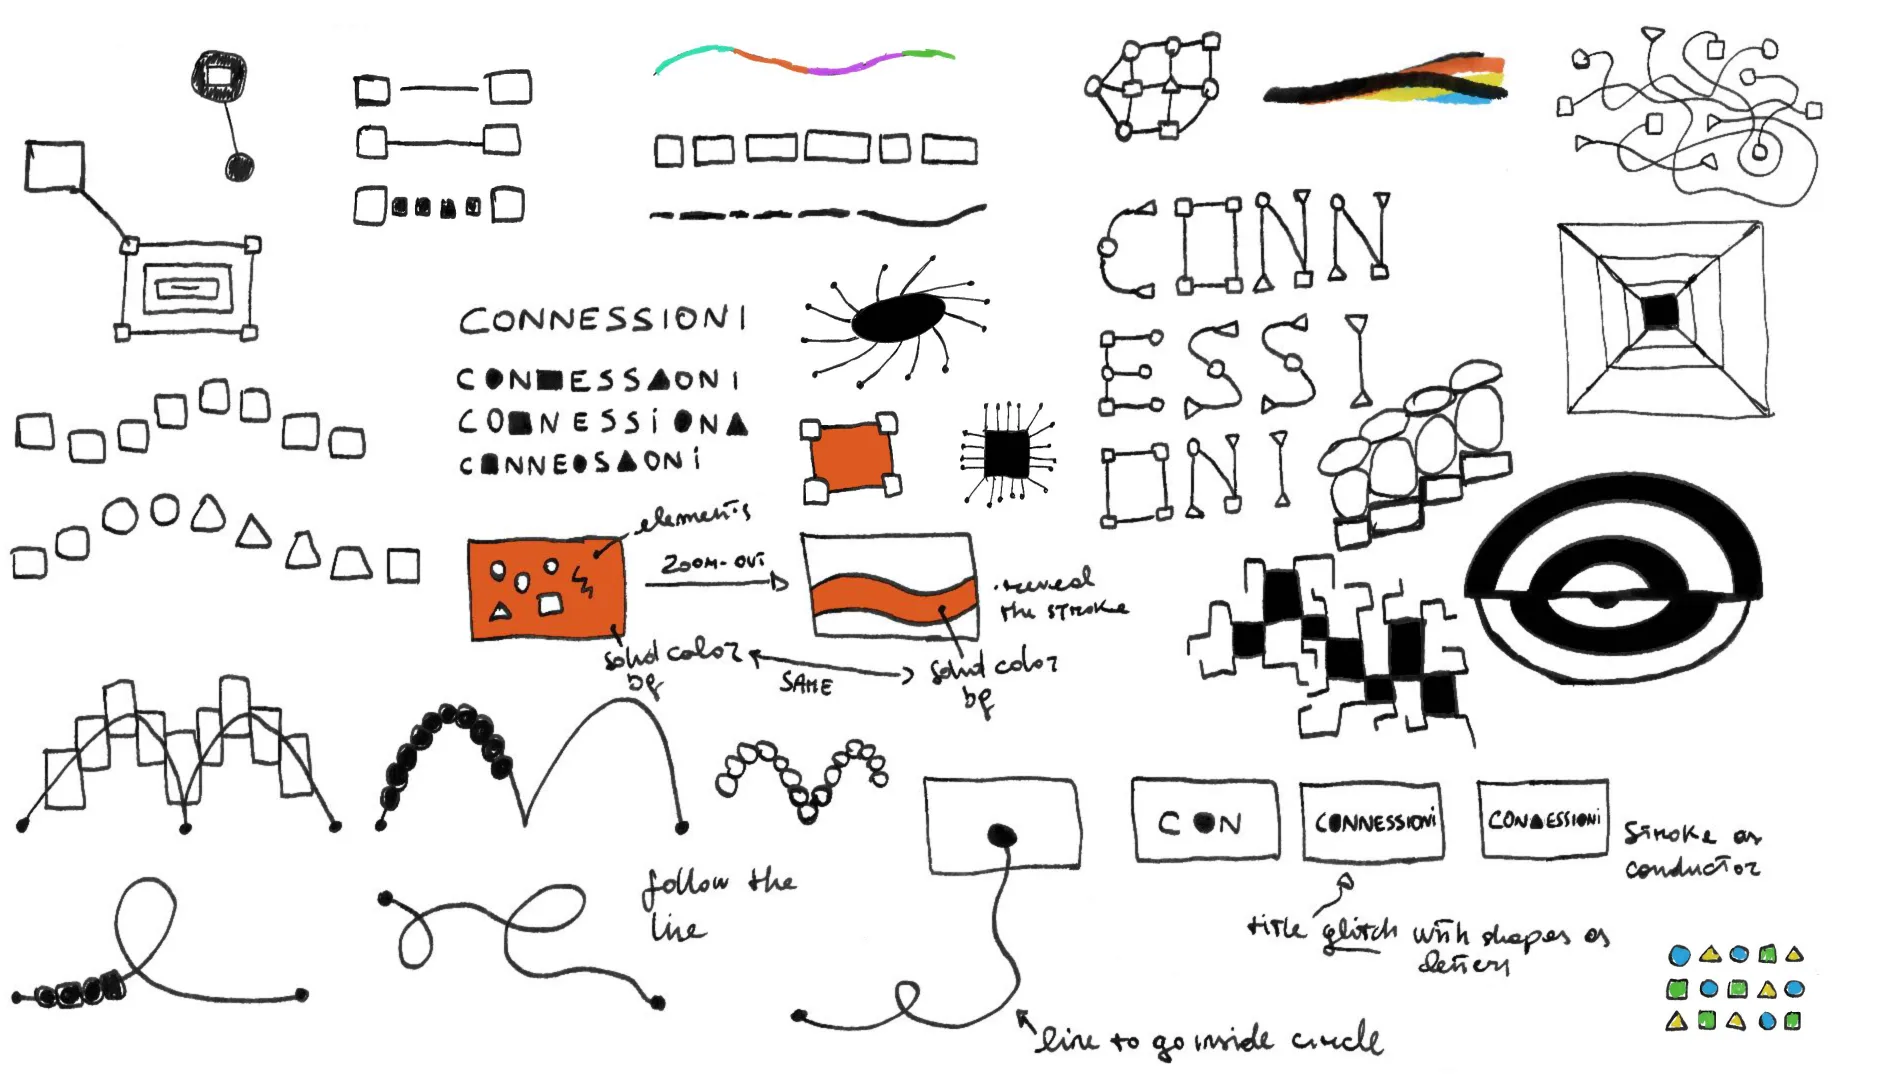 CONNESSIONI
CON■ESS▲ONI
CO■NESSi●NA
C■NNE●S▲ONi
CONN
ESSI
ONI
elements
ZOOM-OUT
solid color
bg
SAME
reveal
the stroke
solid color
bg
follow the
line
C●N
CONNESSIONi
CON▲ESSIONi
Stroke as
conductor
title glitch with shapes as
letters
line to go inside circle